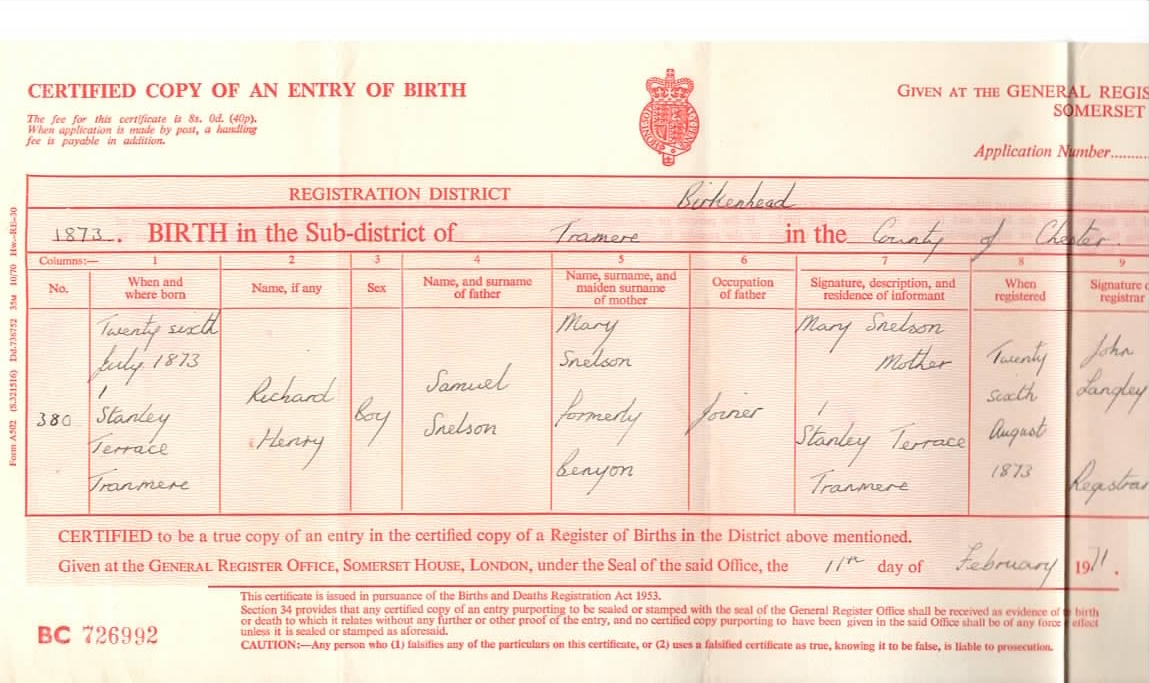 CERTIFIED COPY OF AN ENTRY OF BIRTH
GIVEN AT THE GENERAL REGIS
SOMERSET
The fee for this certificate is 8s. 0d. (40p).
When application is made by post, a handling
fee is payable in addition.
Application Number..........
REGISTRATION DISTRICT Birkenhead
1873. BIRTH in the Sub-district of Tramere in the County of Chester.
Columns:— 1 2 3 4 5 6 7 8 9
No.
When and
where born
Name, if any
Sex
Name, and surname
of father
Name, surname, and
maiden surname
of mother
Occupation
of father
Signature, description, and
residence of informant
When
registered
Signature o
registrar
380
Twenty sixth
July 1873
1
Stanley
Terrace
Tranmere
Richard
Henry
Boy
Samuel
Snelson
Mary
Snelson
formerly
Benyon
Joiner
Mary Snelson
Mother
1
Stanley Terrace
Tranmere
Twenty
sixth
August
1873
John
Langley
Registrar
CERTIFIED to be a true copy of an entry in the certified copy of a Register of Births in the District above mentioned.
Given at the GENERAL REGISTER OFFICE, SOMERSET HOUSE, LONDON, under the Seal of the said Office, the 11th day of February 1971.
This certificate is issued in pursuance of the Births and Deaths Registration Act 1953.
Section 34 provides that any certified copy of an entry purporting to be sealed or stamped with the seal of the General Register Office shall be received as evidence of birth
or death to which it relates without any further or other proof of the entry, and no certified copy purporting to have been given in the said Office shall be of any force effect
unless it is sealed or stamped as aforesaid.
CAUTION:—Any person who (1) falsifies any of the particulars on this certificate, or (2) uses a falsified certificate as true, knowing it to be false, is liable to prosecution.
BC 726992
Form A502 (S.321516) Dd.736752 35M 10/70 Hw.-RE-30